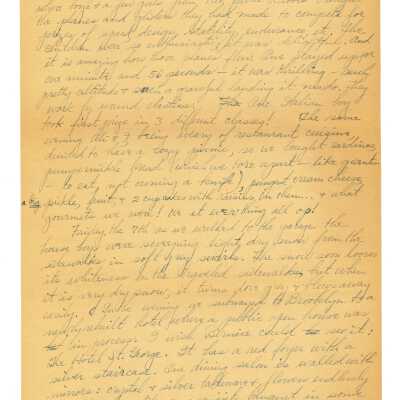 boys & a few girls from the public schools brought
the planes and gliders they had made to compete for
prizes of speed, design, stability, endurance, etc. The
children were so enthusiastic it was delightful. And
it is amazing how those planes flew. One stayed up for
one minute and 56 seconds - it was thrilling - Such
pretty altitude & such a graceful landing it made, they
work by wound elastics. One Italian boy
took first prize in 3 different classes! The same
evening Al & I being weary of restaurant cuisine
decided to have a cozy picnic, so we bought sardines,
pumpernickel bread (which we tore apart - like giants
- to eat, not owning a knife), pimento cream cheese
a big pickle, fruit, & 2 cupcakes with raisins in them.. & what
gourmets we were! We et everything all up!
Friday the 7th as we walked to the garage the
house boys were sweeping light, dry snow from the
sidewalks in soft gray swirls. The snow soon looses
its whiteness on the traveled sidewalks, but when
it is very dry snow, it turns dove gray & blows away
easily. In the evening we subwayed to Brooklyn to a
newly built hotel where a public open house was
in process. I wish Bernice could see it:
The Hotel St. George. It has a red foyer with a
silver staircase. One dining salon is walled with
mirrors: crystal & silver tableware & flowers endlessly
banquet in some